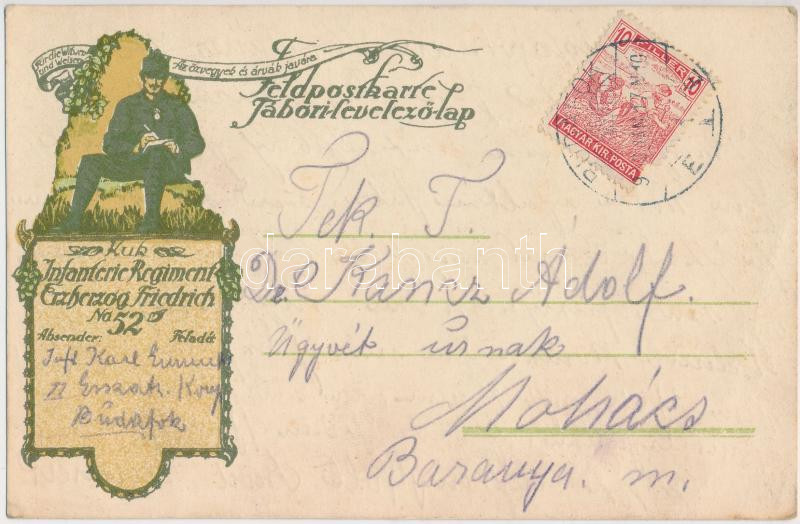 Für die Witwen
und Weisen
Az özvegyek és árvák javára
Feldpostkarte
Tábori-levelező-lap
10 FILLÉR 10
MAGYAR KIR. POSTA
Tek. T.
Dr. Kancz Adolf.
ügyvét úrnak
Mohács
Baranya. m.
Kuk
Infanterie Regiment
Erzherzog Friedrich
No 52
Absender: Feladó
Inft Karl
II Ersatz. Komp
Budafok
darabanth